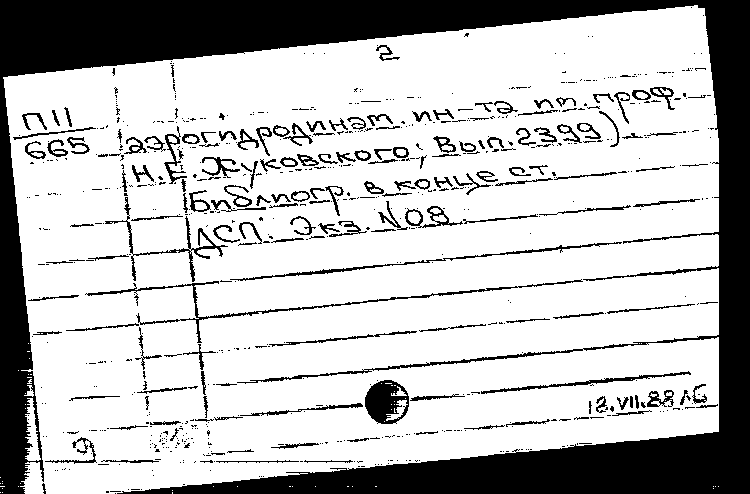 2
П11
665
аэрогидродинам. ин-та им. проф.
Н.Е. Жуковского; Вып. 2399).
Библиогр. в конце ст.
ДСП. Экз. №08.